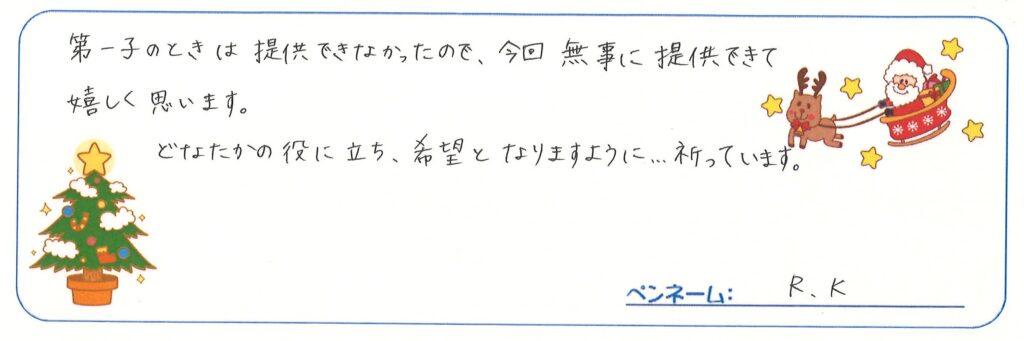 第一子のときは提供できなかったので、今回無事に提供できて
嬉しく思います。
どなたかの役に立ち、希望となりますように…祈っています。
ペンネーム: R、K